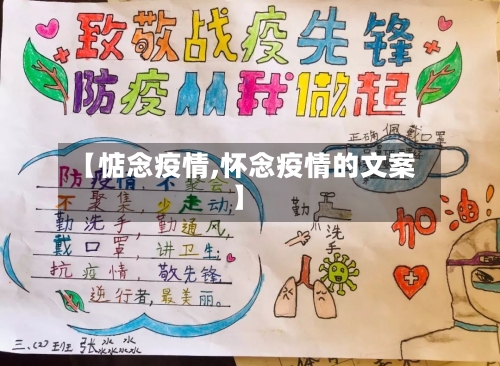 致敬战疫先锋
防疫从我做起
正确佩戴口罩
【惦念疫情,怀念疫情的文案
】
防疫情,不聚会
不聚集,少走动;
勤洗手,勤通风,
戴口罩,讲卫生;
抗疫情,敬先锋,
逆行者,最美丽。
勤
洗
手
加油!
三、(2)班 张